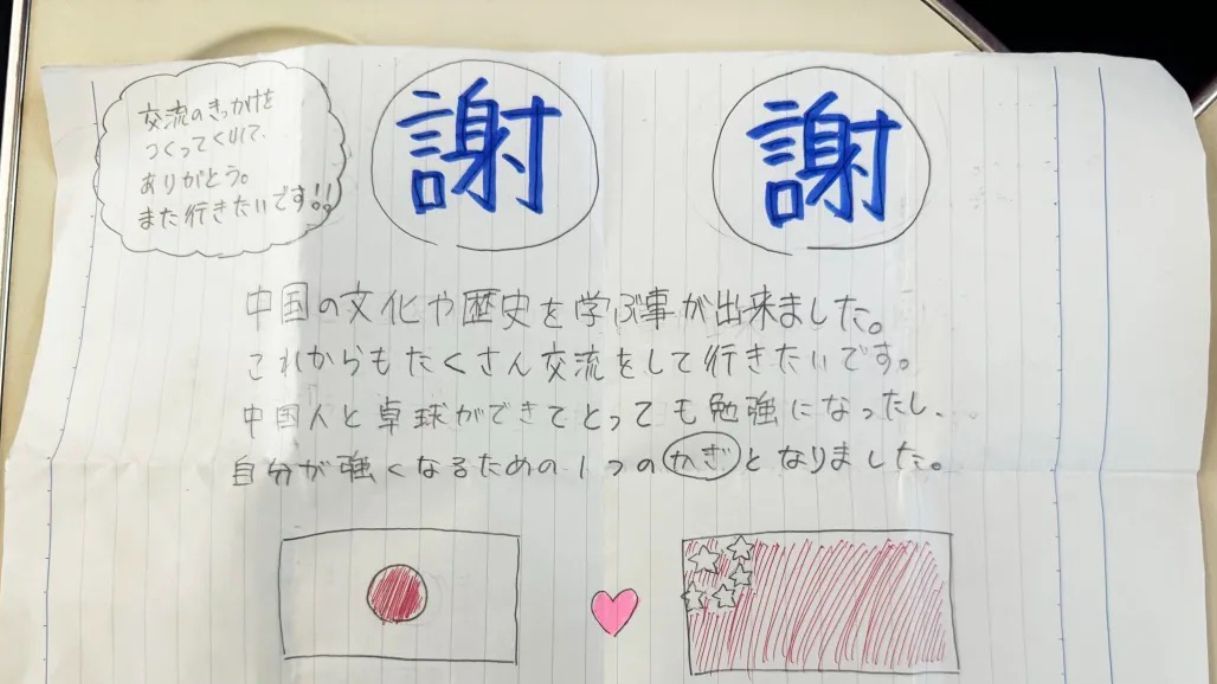 交流のきっかけを
つくってくれて、
ありがとう。
また行きたいです!!
謝 謝
中国の文化や歴史を学ぶ事が出来ました。
これからもたくさん交流をして行きたいです。
中国人と卓球ができてとっても勉強になったし、
自分が強くなるための1つのかぎとなりました。